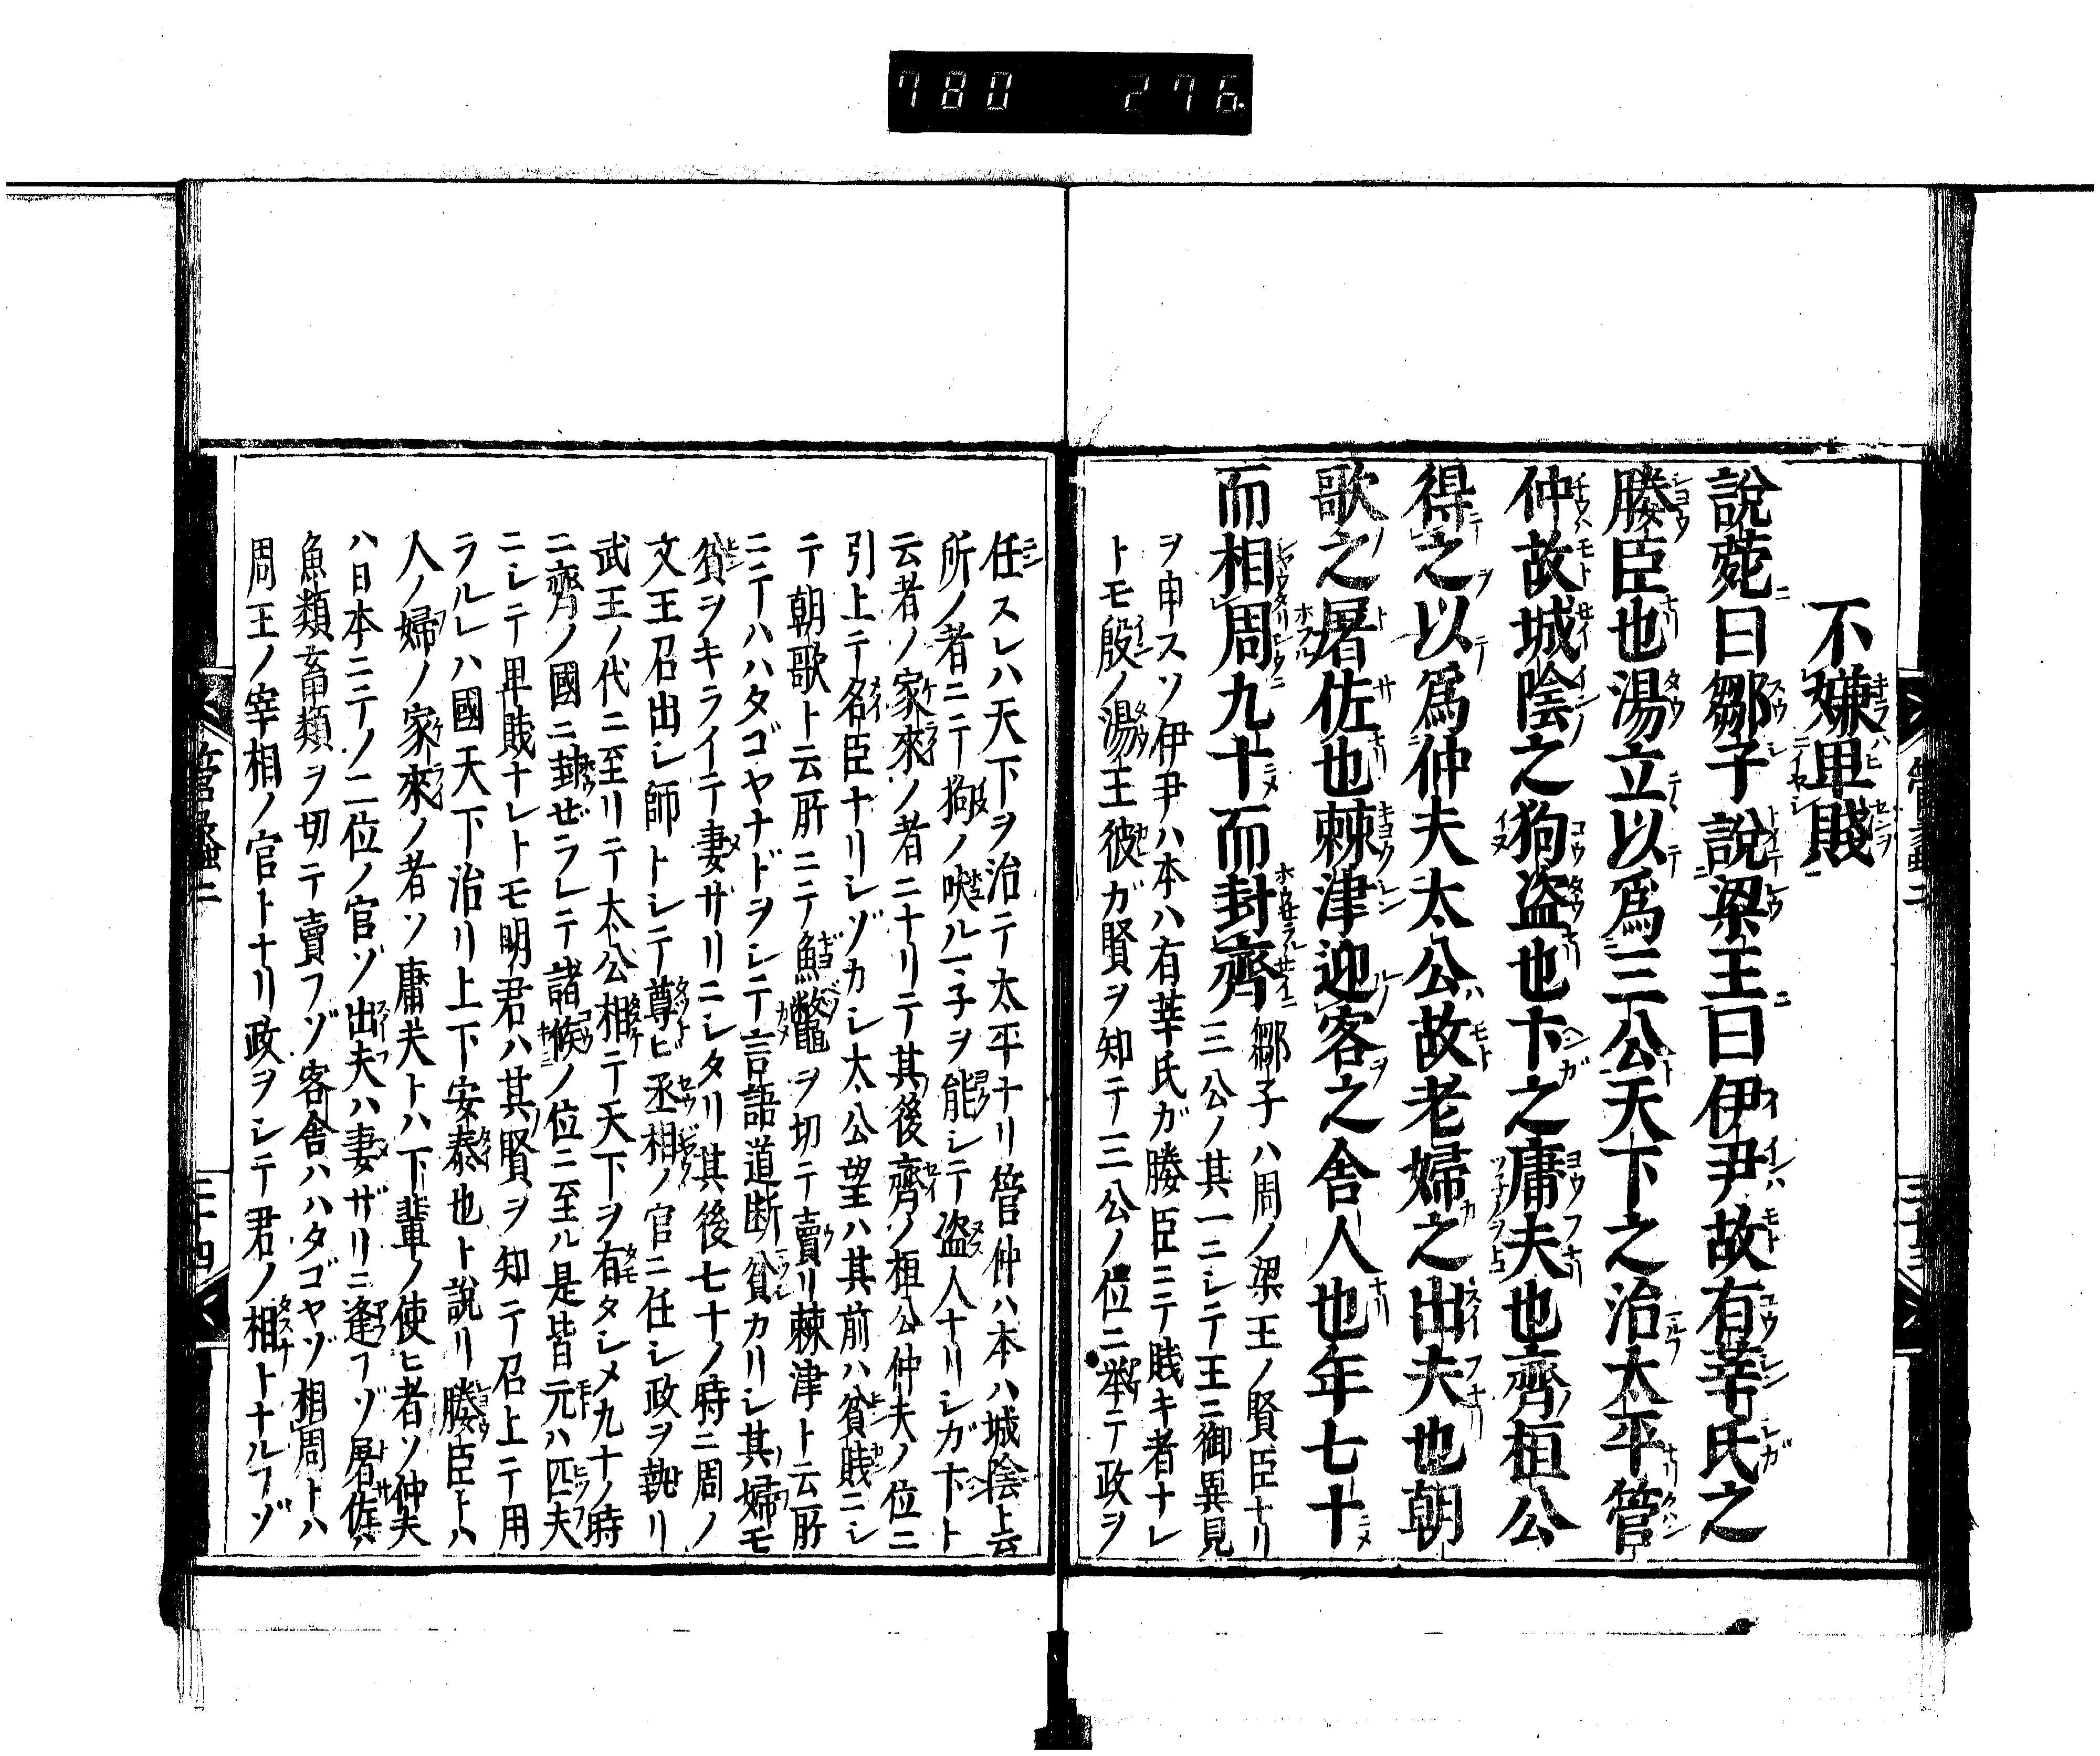 780 276
不嫌卑賤
說苑曰鄒子說梁王曰伊尹故有莘氏之
媵臣也湯立以爲三公天下之治太平管
仲故城陰之狗盗也卞之庸夫也齊桓公
得之以爲仲夫太公故老婦之出夫也朝
歌之屠佐也棘津迎客之舍人也年七十
而相周九十而封齊鄒子ハ周ノ梁王ノ賢臣ナリ
三公ノ其一ニシテ王ニ御異見
ヲ申スソ伊尹ハ本ハ有莘氏ガ媵臣ニテ賎キ者ナレ
トモ殷ノ湯王彼ガ賢ヲ知テ三公ノ位ニ挙テ政ヲ
任スレハ天下ヲ治テ太平ナリ管仲ハ本ハ城陰ト云
所ノ者ニテ狗ノ㗛ルヿ子ヲ能シテ盗人ナリシガ卞ト
云者ノ家來ノ者ニナリテ其後齊ノ桓公仲夫ノ位ニ
引上テ名臣ナリシゾカシ太公望ハ其前ハ貧賎ニシ
テ朝歌ト云所ニテ魚鼈ヲ切テ賣リ棘津ト云所
ニテハハタゴヤナドヲシテ言語道断貧カリシ其婦モ
貧ヲキライテ妻ザリニシタリ其後七十ノ時ニ周ノ
文王召出シ師トシテ尊ビ丞相ノ官ニ任シ政ヲ執リ
武王ノ代ニ至リテ太公相テ天下ヲ有タシメ九十ノ時
ニ齊ノ國ニ封ぜラレテ諸候ノ位ニ至ル是皆元ハ匹夫
ニシテ卑賎ナレトモ明君ハ其賢ヲ知テ召上テ用
ラルレハ國天下治リ上下安泰也ト說リ媵臣トハ
人ノ婦ノ家來ノ者ソ庸夫トハ下輩ノ使ヒ者ソ仲夫
ハ日本ニテノ二位ノ官ゾ出夫ハ妻ザリニ逢フゾ屠佐ハ
魚類畜類ヲ切テ賣フゾ客舎ハハタゴヤゾ相周トハ
周王ノ宰相ノ官トナリ政ヲシテ君ノ相トナルフゾ
管蠡二
三十四